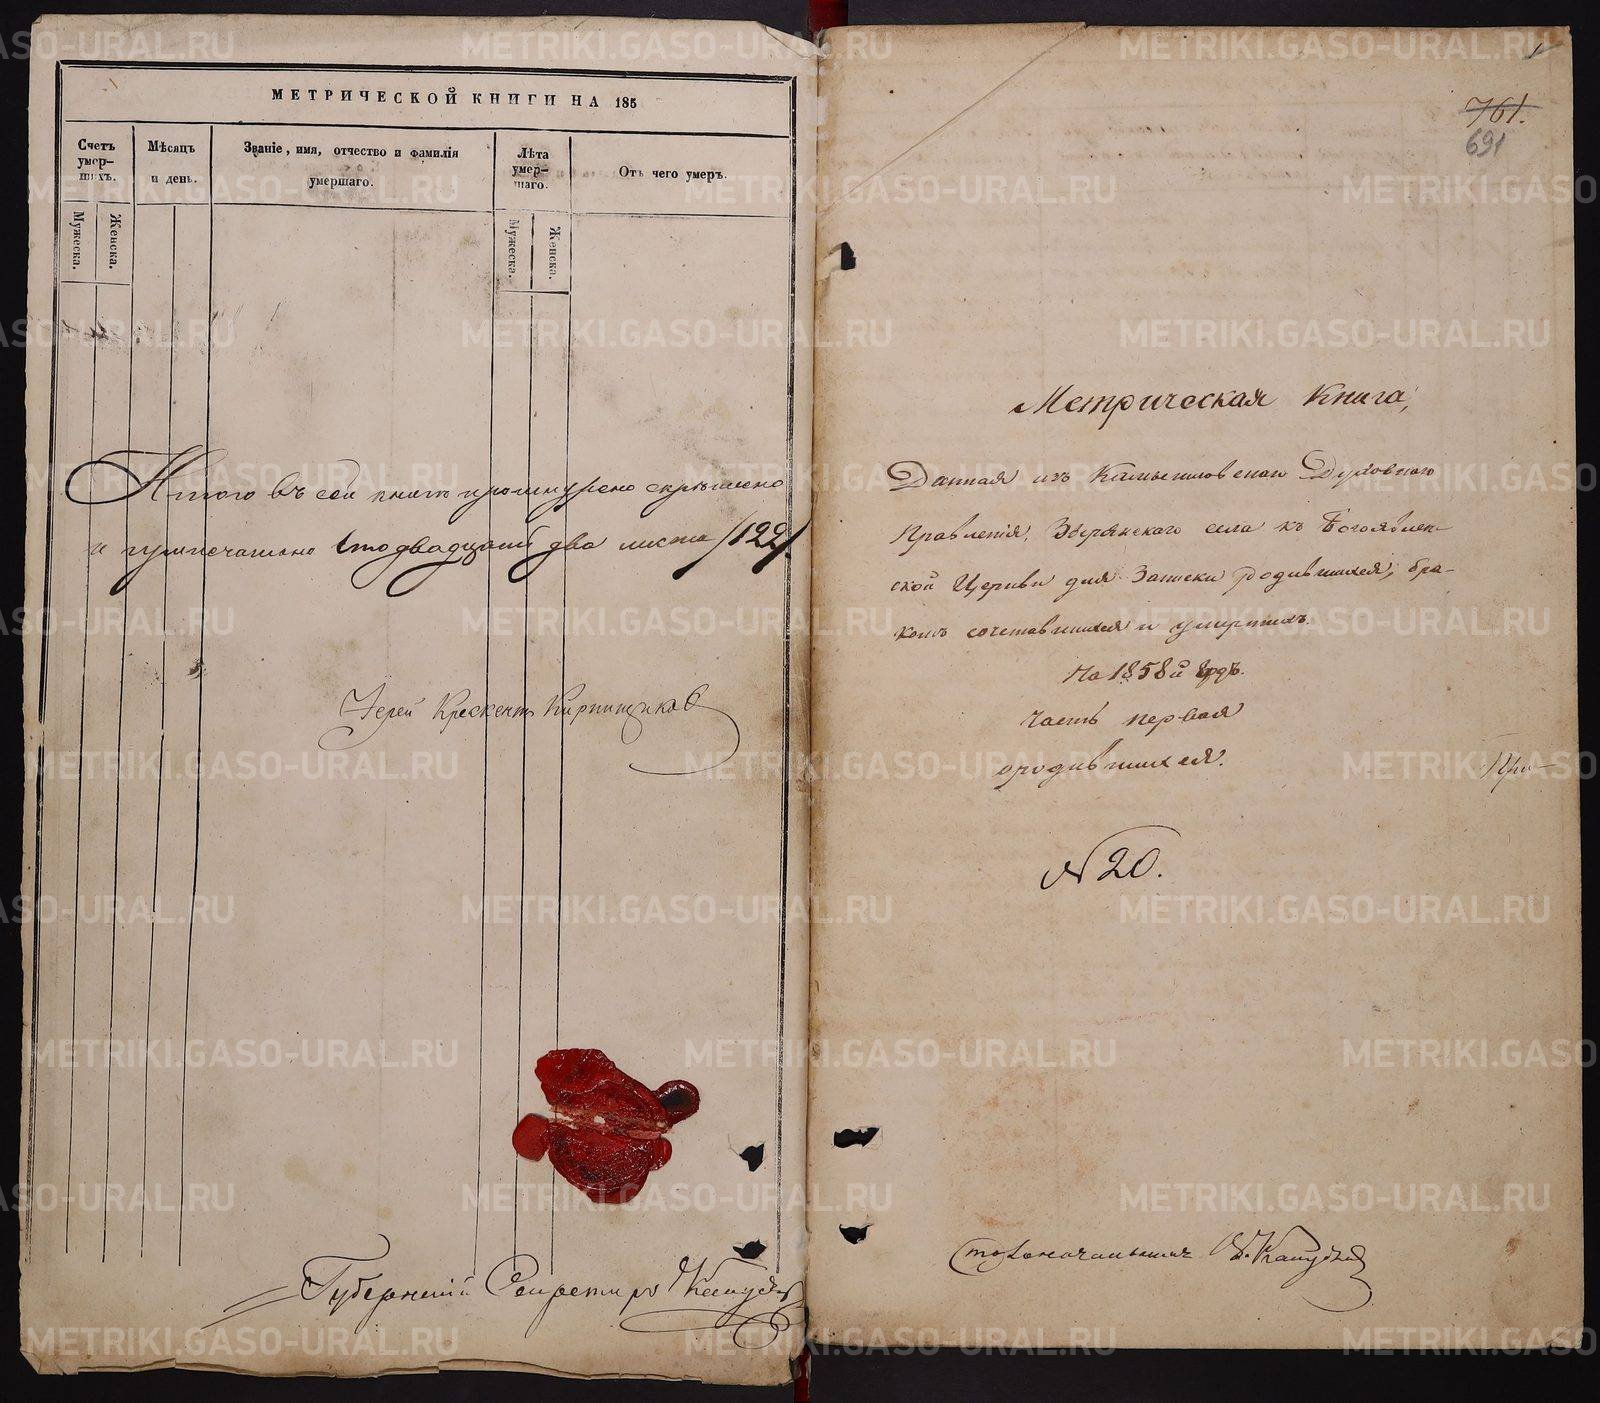 МЕТРИЧЕСКОЙ КНИГИ НА 185
Счетъ умер-шихъ.
Мѣсяцъ и день.
Званіе, имя, отчество и фамилія умершаго.
Лѣта умер-шаго.
Отъ чего умеръ.
Мужеска.
Женска.
Мужеска.
Женска.
Итого въ сей книгѣ прошнурено скрѣплено
и припечатано сто двадцать два листа /122/.
Іерей Крескентъ Кирпищиковъ
Губернскій Секретарь
1
761.
691
Метрическая Книга,
Данная изъ Камышловскаго Духовнаго
Правленія, Зырянскаго села къ Богоявлен-
ской Церкви для Записки родившихся, бра-
комъ сочетавшихся и умершихъ.
На 1858й годъ.
Часть первая
о родившихся.
При-
N 20.
Столоначальникъ
METRIKI.GASO-URAL.RU